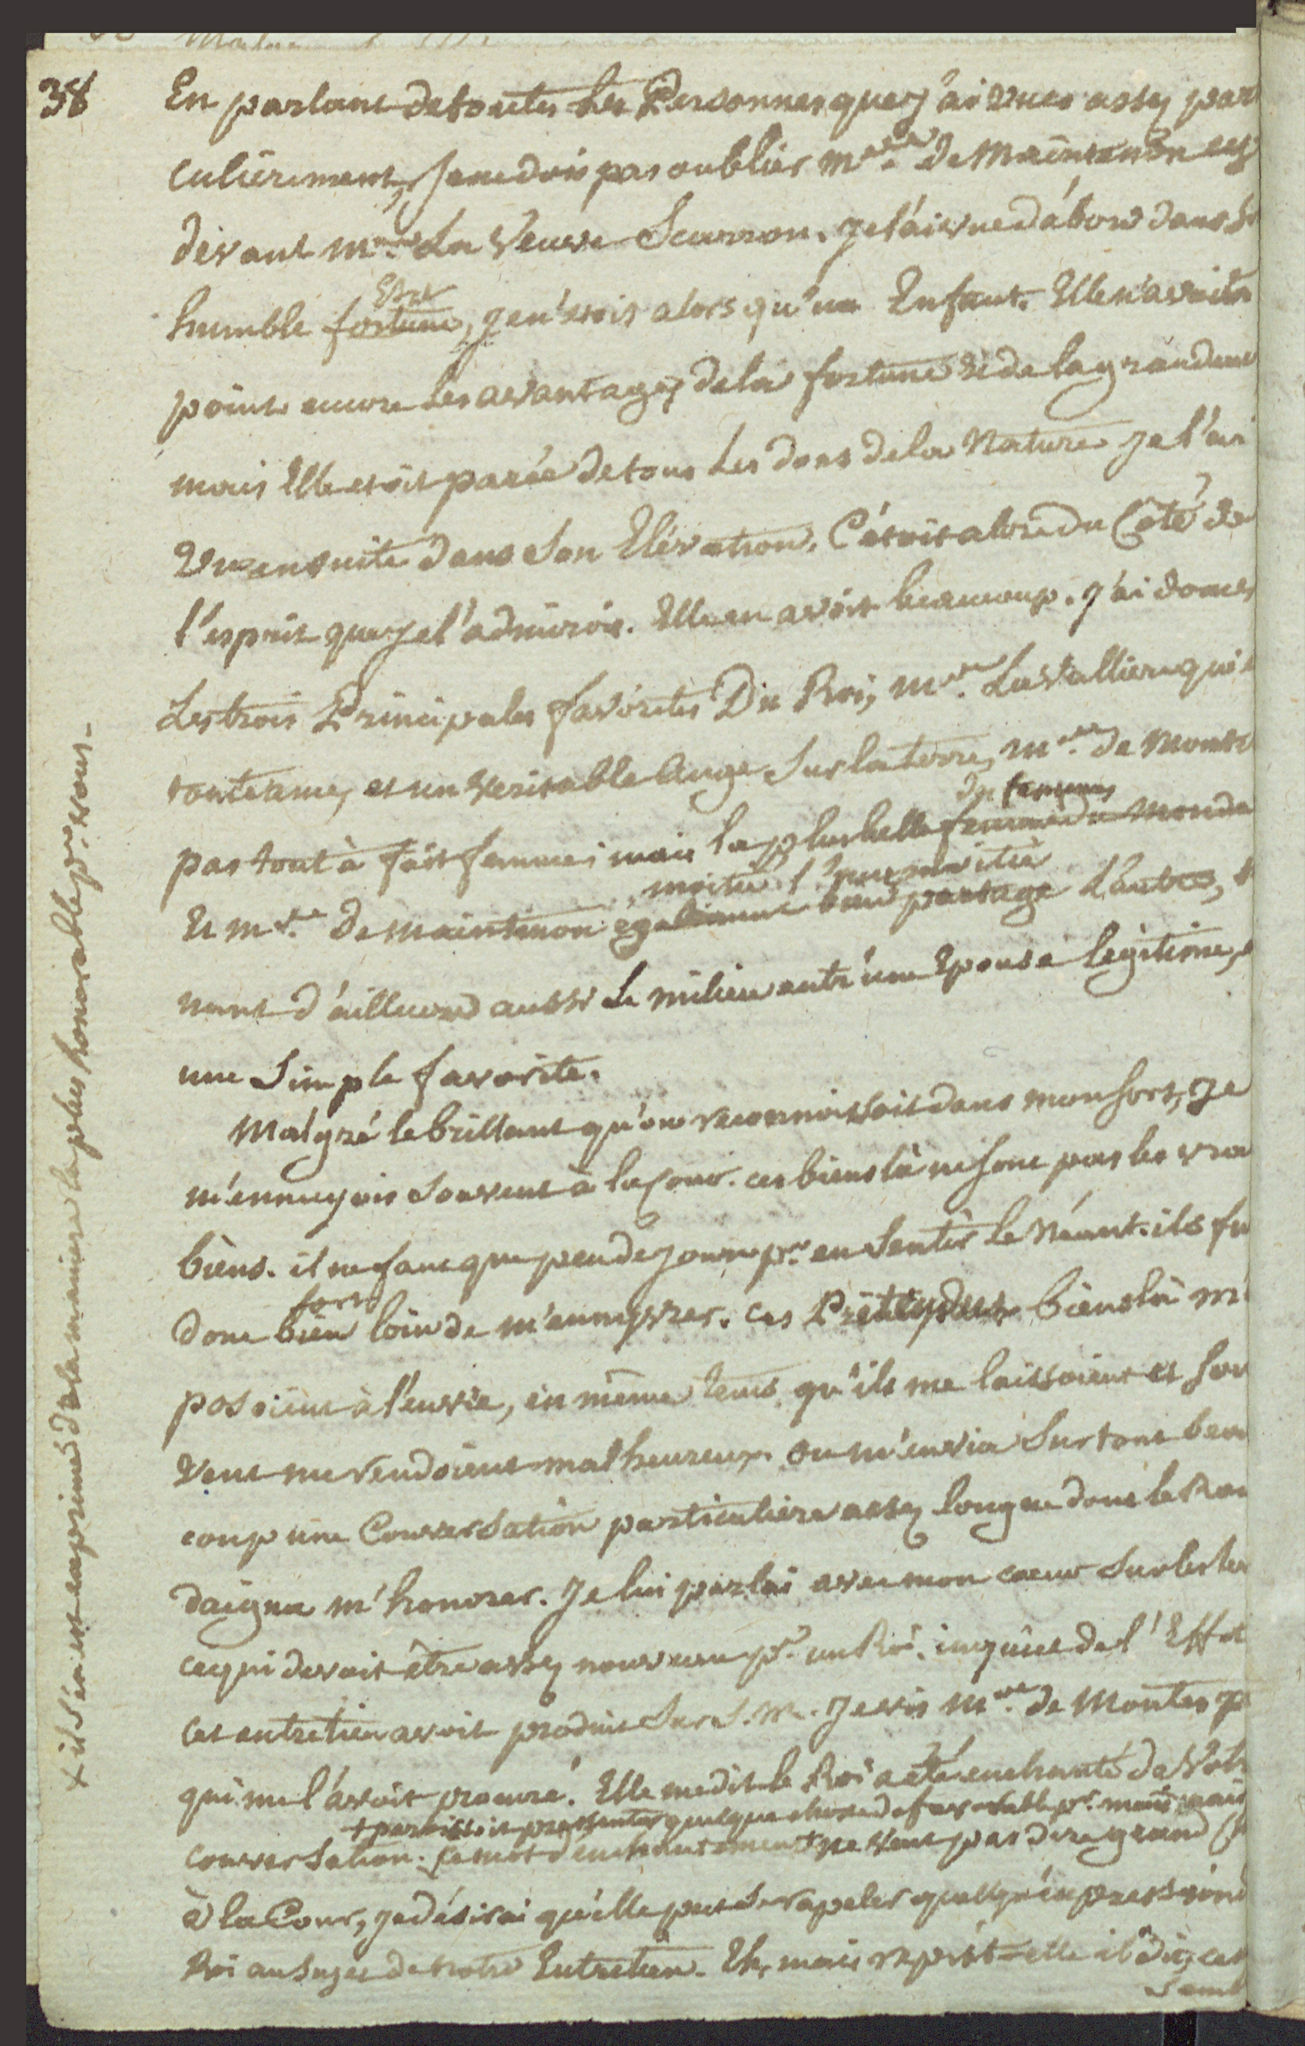 38
En parlant de toutes les Personnes que j'ai vues assez par
culièrement, Je ne dois pas oublier Mme de Maintenon cy
devant Mme La Veuve Scarron. Je l'ai vue d'abord dans s
Etat
humble fortune, je n'etois alors qu'un Enfant. Elle n'avoit
point encore les avantages de la fortune et de la grandeur
mais Elle etoit parée de tous Les dons de la Nature Je l'ai
vue ensuite dans son Elévation. C'étoit alors du Côté de
l'esprit que je l'admirois. Elle en avoit beaucoup. J'ai donc
Les trois Principales favorites Du Roi, Mme La Valliere qui
toute ame, et un veritable Ange sur la terre, Mme de Mont
des femmes
pas tout à fait femme; mais la plus belle femme du Monde
moitié l'une moitié
Et Mme de Maintenon egalement partage L'autre,
nant d'ailleurs aussi Le milieu entr'une Epouse legitime,
une Simple favorite.
Malgré le brillant qu'on reconnoissoit dans mon sort, Je
m'ennuyois souvent à la Cour. ces biens là ne sont pas les vra
biens. il ne faut que peu de jours pr. en sentir le Néant. ils fu
fort
donc bien loin de m'ennyvrer. Ces Prétendus biens là m'
posoient à l'envie, en même tems qu'ils me laissoient et sou
vent me rendoient malheureux. on m'envia surtout beau
coup une Conversation particuliere assez longue dont le Roi
daigna m'honorer. Je lui parlai avec mon coeur sur les
ce qui devoit être assez nouveau pr. un Roi. inquiet de l'Effet
cet entretien avoit produit sur S. M. Je vis Mme de Montesp
qui me l'avoit procuré. Elle me dit le Roi a été enchanté de Votr
+ paroissoit presenter quelque chose de favorable pr. moi mais
conversation. Ce mot d'enchantement + ne veut pas dire grand
à la Cour, je désirai qu'elle put se rapeler quelqu'expression
Roi au Sujet de notre Entretien. Eh, mais reprit-elle il dit, cet
Semb
+ il s'en est exprimé de la maniere la plus honorable pr. vous-